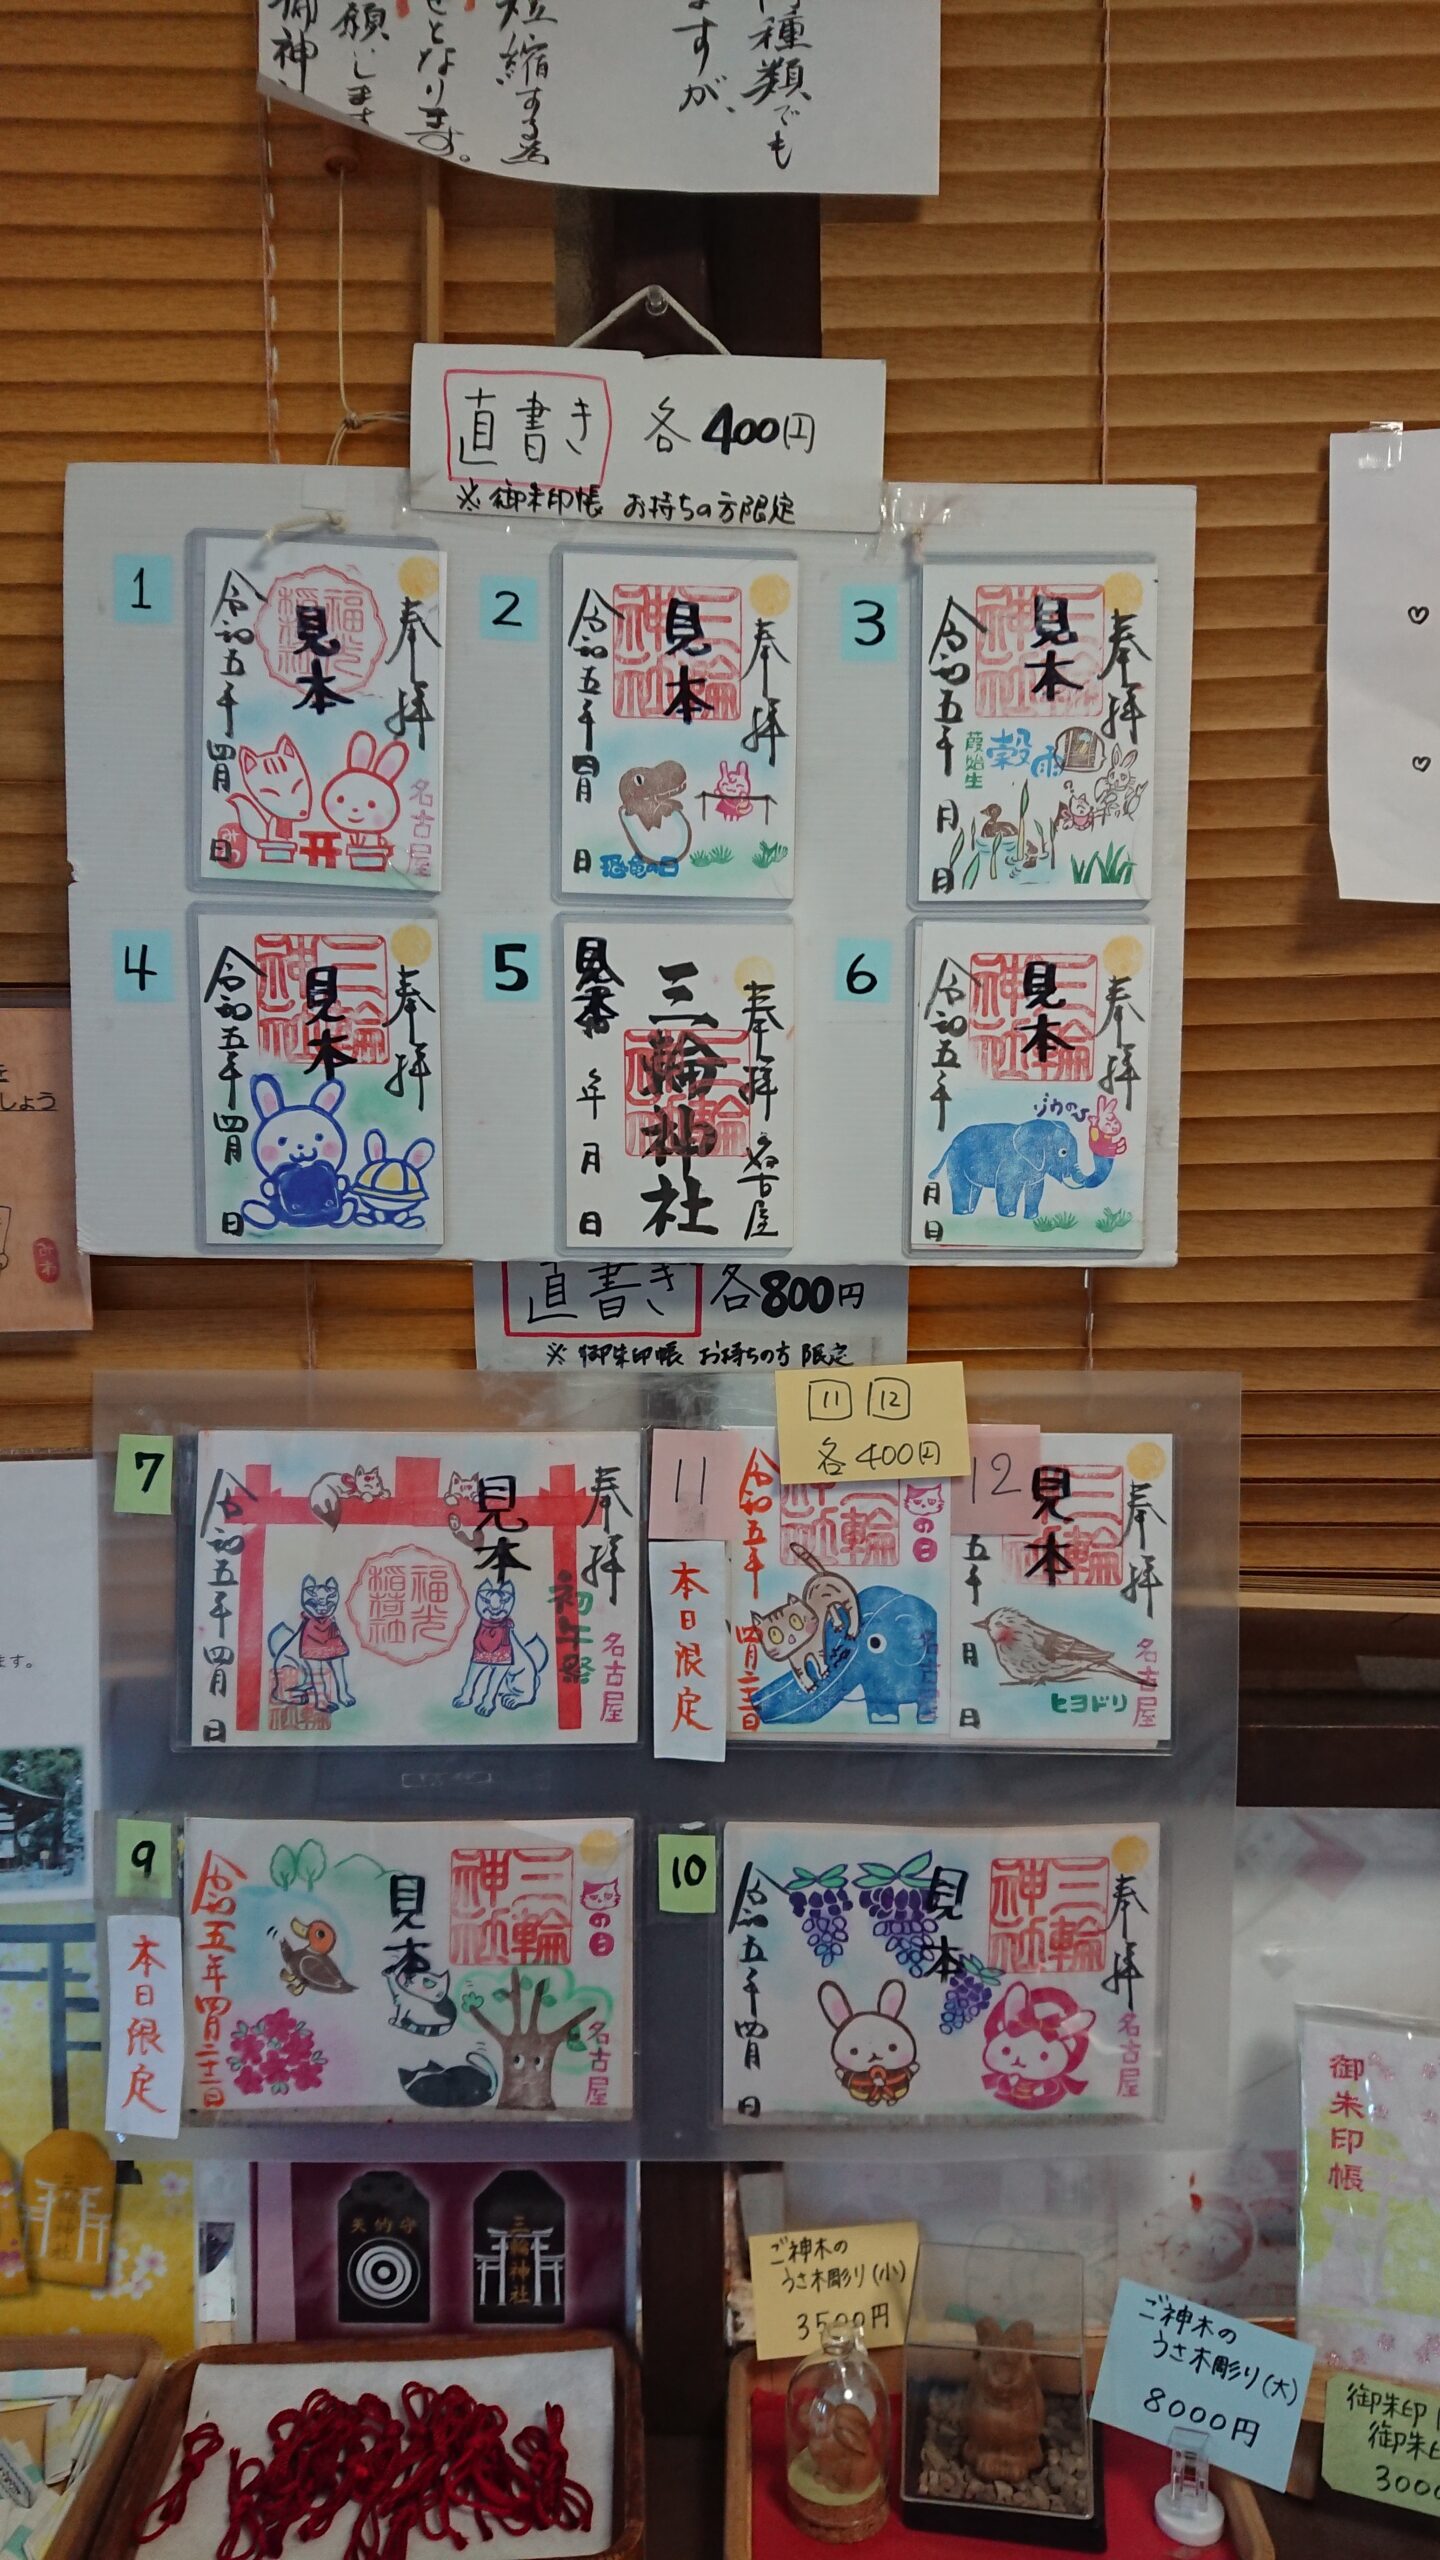 種類でも
すが、
短縮する為
となります。
願します
直書き 各400円
※御朱印帳 お持ちの方限定
1
奉拝
福光稲荷社
見本
令和五年四月 日
名古屋
2
奉拝
三輪神社
見本
令和五年四月 日
恐竜の日
3
奉拝
三輪神社
見本
穀雨
葭始生
令和五年 月 日
4
奉拝
三輪神社
見本
令和五年四月 日
5
奉拝 名古屋
三輪神社
見本
年 月 日
6
奉拝
三輪神社
見本
ゾウのひ
令和五年 月 日
直書き 各800円
※御朱印帳 お持ちの方限定
11 12
各400円
7
奉拝
見本
初午祭
名古屋
福光稲荷社
令和五年四月 日
11
本日限定
の日
三輪神社
名古屋
令和五年四月二十二日
12
奉拝
見本
五年 月 日
ヒヨドリ
名古屋
9
本日限定
の日
三輪神社
見本
名古屋
令和五年四月二十二日
10
奉拝
三輪神社
見本
名古屋
令和五年四月 日
天的守
三輪神社
ご神木の
うさ木彫り(小)
3500円
ご神木の
うさ木彫り(大)
8000円
御朱印帳
御朱印
御朱印
3000
しょう
ます。